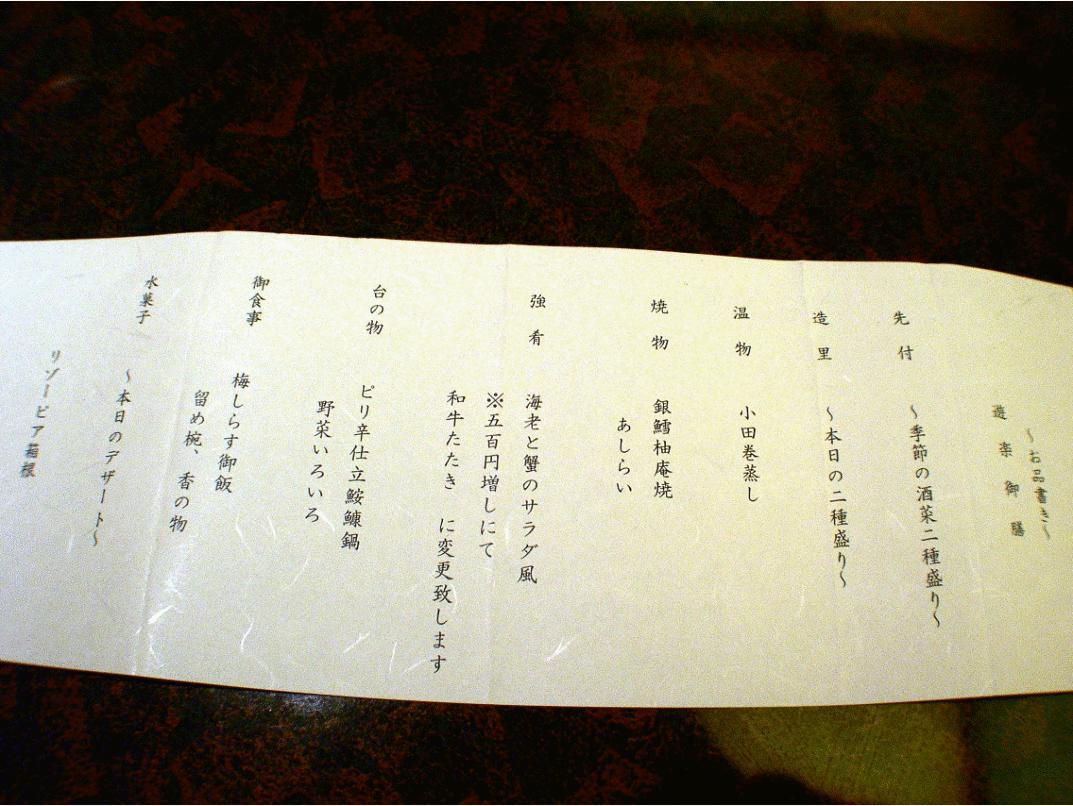 ～お品書き～
遊楽御膳
先付　～季節の酒菜二種盛り～
造里　～本日の二種盛り～
温物　小田巻蒸し
焼物　銀鱈柚庵焼
あしらい
強肴　海老と蟹のサラダ風
※五百円増しにて
和牛たたき　に変更致します
台の物　ピリ辛仕立鮟鱇鍋
野菜いろいろ
御食事　梅しらす御飯
留め椀、香の物
水菓子　～本日のデザート～
リゾーピア箱根